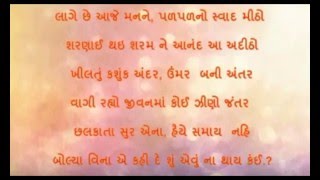 લાગે છે આજે મનને, પળપળનો સ્વાદ મીઠો
શરણાઈ થઇ શરમ ને આનંદ આ અદીઠો
ખીલતું કશુંક અંદર, ઉંમર બની અંતર
વાગી રહ્યો જીવનમાં કોઈ ઝીણો જંતર
છલકાતા સુર એના, હૈયે સમાય નહિ
બોલ્યા વિના એ કહી દે શું એવું ના થાય કંઈ.?